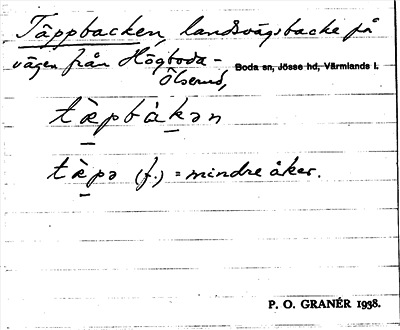 Täppbacken, landsvägsbacke på
vägen från Högboda -
Ölserud,
Boda sn, Jösse hd, Värmlands l.
tæ̀pbàkən
tæ̀pə (f.) = mindre åker.
P. O. GRANÉR 1938.